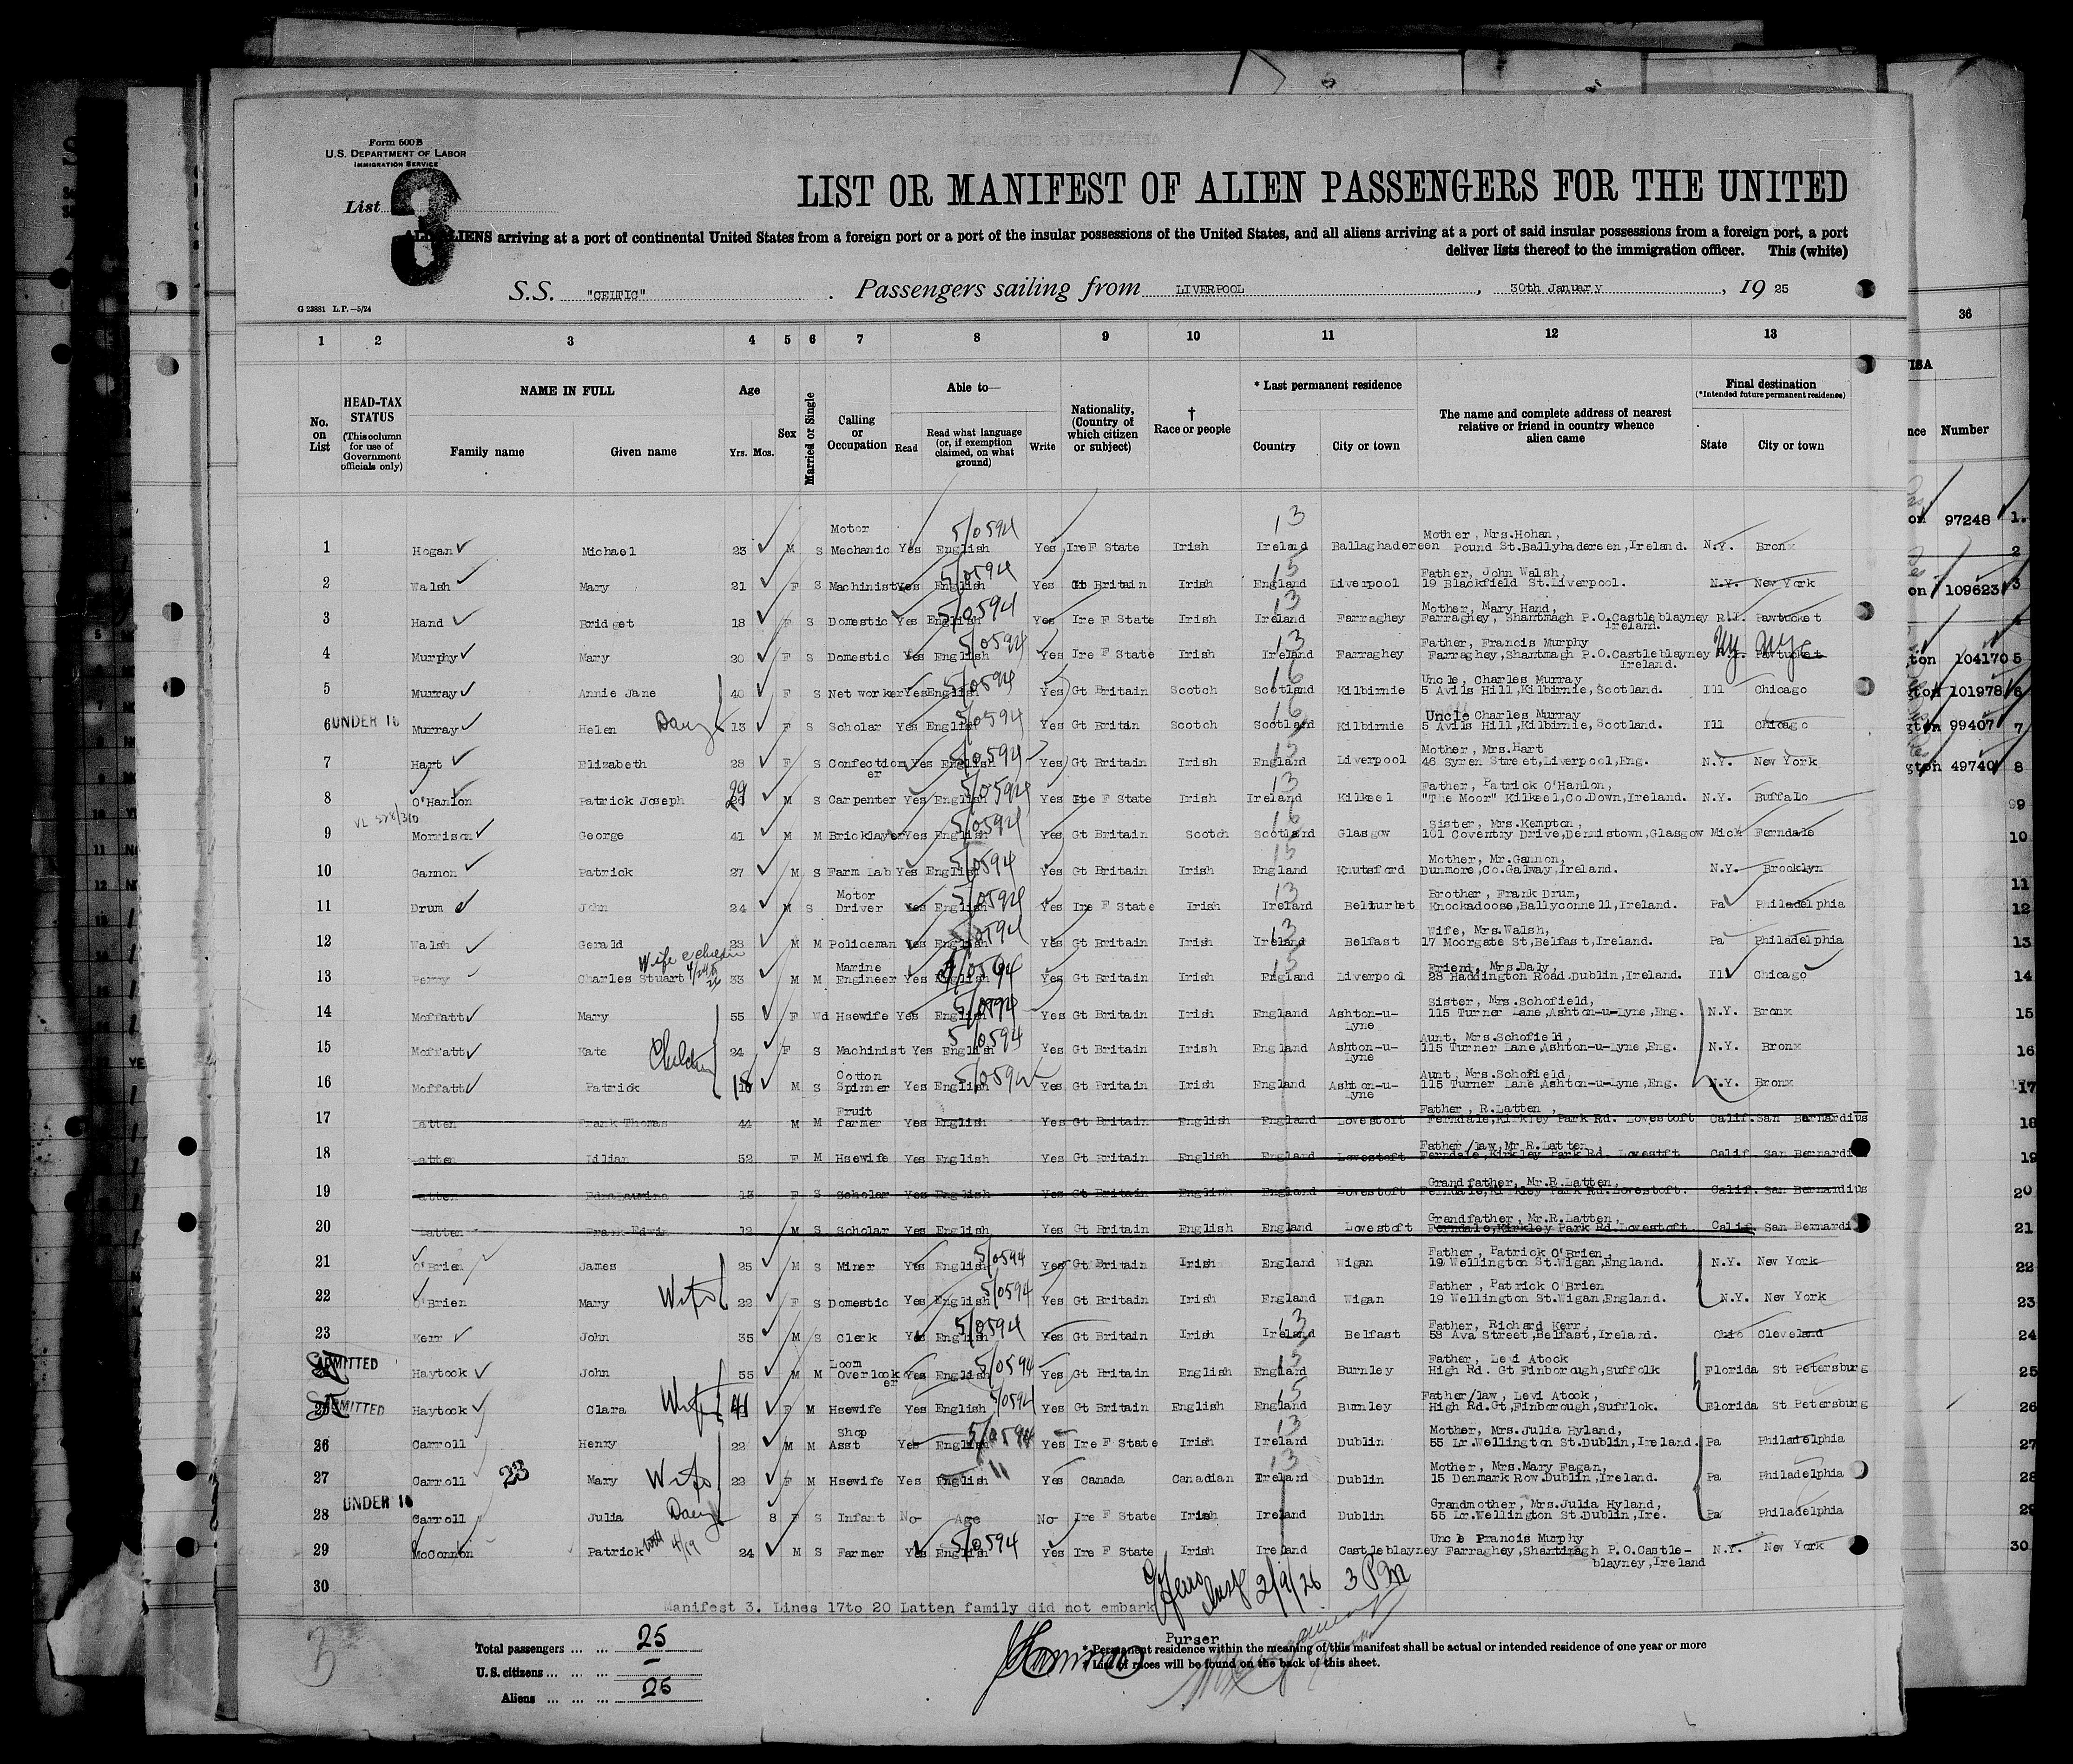 Form 500B
U.S. DEPARTMENT OF LABOR
IMMIGRATION SERVICE
List 3
LIST OR MANIFEST OF ALIEN PASSENGERS FOR THE UNITED
ALL ALIENS arriving at a port of continental United States from a foreign port or a port of the insular possessions of the United States, and all aliens arriving at a port of said insular possessions from a foreign port, a port
deliver lists thereof to the immigration officer. This (white)
S.S. "CELTIC" . Passengers sailing from LIVERPOOL , 30th January , 19 25
G 23881 L.P.—5/24
1 2 3 4 5 6 7 8 9 10 11 12 13 36
No. on List
HEAD-TAX STATUS (This column for use of Government officials only)
NAME IN FULL
Family name Given name
Age
Yrs. Mos.
Sex
Married or Single
Calling or Occupation
Able to—
Read Read what language (or, if exemption claimed, on what ground) Write
Nationality, (Country of which citizen or subject)
† Race or people
* Last permanent residence
Country City or town
The name and complete address of nearest relative or friend in country whence alien came
Final destination
(*Intended future permanent residence)
State City or town
Number
1 Hogan Michael 23 M S Motor Mechanic Yes English 5/0594 Yes Ire F State Irish Ireland 13 Ballaghadereen Mother, Mrs.Hohan, Pound St.Ballyhadereen,Ireland. N.Y. Bronx
2 Walsh Mary 21 F S Machinist Yes English 5/0594 Yes Gt Britain Irish England 15 Liverpool Father, John Walsh, 19 Blackfield St.Liverpool. N.Y. New York
3 Hand Bridget 18 F S Domestic Yes English 5/0594 Yes Ire F State Irish Ireland 13 Farraghey Mother, Mary Hand, Farraghey, Shantmagh P.O.Castleblayney Ireland. R.I. Pawtucket
4 Murphy Mary 20 F S Domestic Yes English 5/0594 Yes Ire F State Irish Ireland 13 Farraghey Father, Francis Murphy Farraghey,Shantmagh P.O.Castleblayney Ireland. Ny Pawtucket Nyc
5 Murray Annie Jane 40 F S Net worker Yes English 5/0594 Yes Gt Britain Scotch Scotland 16 Kilbirnie Uncle, Charles Murray 5 Avils Hill,Kilbirnie,Scotland. Ill Chicago
6 UNDER 16 Murray Helen Daug 13 F S Scholar Yes English 5/0594 Yes Gt Britain Scotch Scotland 16 Kilbirnie Uncle Charles Murray 5 Avils Hill,Kilbirnie,Scotland. Ill Chicago
7 Hart Elizabeth 28 F S Confectioner Yes English 5/0594 Yes Gt Britain Irish England 15 Liverpool Mother, Mrs.Hart 46 Syren Street,Liverpool,Eng. N.Y. New York
8 O'Hanlon Patrick Joseph 29 M S Carpenter Yes English 5/0594 Yes Ire F State Irish Ireland 13 Kilkeel Father, Patrick O'Hanlon, "The Moor" Kilkeel,Co.Down,Ireland. N.Y. Buffalo
9 Morrison George 41 M M Bricklayer Yes English 5/0594 Yes Gt Britain Scotch Scotland 16 Glasgow Sister, Mrs.Kempton, 101 Coventry Drive,Dennistown,Glasgow Mich Ferndale
10 Gannon Patrick 27 M S Farm Lab Yes English 5/0594 Yes Gt Britain Irish England 15 Knutsford Mother, Mr.Gannon, Dunmore,Co.Galway,Ireland. N.Y. Brooklyn
11 Drum John 24 M S Motor Driver Yes English 5/0594 Yes Ire F State Irish Ireland 13 Belturbet Brother, Frank Drum, Knockadoose,Ballyconnell,Ireland. Pa Philadelphia
12 Walsh Gerald 23 M M Policeman Yes English 5/0594 Yes Gt Britain Irish Ireland 13 Belfast Wife, Mrs.Walsh, 17 Moorgate St,Belfast,Ireland. Pa Philadelphia
13 Perry Charles Stuart Wife & children 33 M M Marine Engineer Yes English 5/0594 Yes Gt Britain Irish England 15 Liverpool Friend, Mrs.Daly, 28 Haddington Road.Dublin,Ireland. Ill Chicago
14 Moffatt Mary 55 F Wd Hsewife Yes English 5/0594 Yes Gt Britain Irish England Ashton-u-Lyne Sister, Mrs.Schofield, 115 Turner Lane,Ashton-u-Lyne,Eng. N.Y. Bronx
15 Moffatt Kate Children 24 F S Machinist Yes English 5/0594 Yes Gt Britain Irish England Ashton-u-Lyne Aunt, Mrs.Schofield, 115 Turner Lane,Ashton-u-Lyne,Eng. N.Y. Bronx
16 Moffatt Patrick 18 M S Cotton Spinner Yes English 5/0594 Yes Gt Britain Irish England Ashton-u-Lyne Aunt, Mrs.Schofield, 115 Turner Lane,Ashton-u-Lyne,Eng. N.Y. Bronx
17 Latten Frank Thomas 44 M M Fruit farmer Yes English Yes Gt Britain English England Lovestoft Father, R.Latten, Ferndale,Kirkley Park Rd. Lovestoft Calif. San Bernardius
18 Latten Lilian 52 F M Hsewife Yes English Yes Gt Britain English England Lovestoft Father/law,Mr.R.Latten, Ferndale,Kirkley Park Rd. Lovestft Calif. San Bernardi
19 Latten 13 F S Scholar Yes English Yes Gt Britain English England Lovestoft Grandfather, Mr.R.Latten, Ferndale,Kirkley Park Rd.Lovestoft. Calif. San Bernardius
20 Latten Frank Edwin 12 M S Scholar Yes English Yes Gt Britain English England Lovestoft Grandfather, Mr.R.Latten, Ferndale,Kirkley Park Rd.Lovestoft Calif. San Bernardi
21 O'Brien James 25 M S Miner Yes English 5/0594 Yes Gt Britain Irish England Wigan Father, Patrick O'Brien, 19 Wellington St.Wigan,England. N.Y. New York
22 O'Brien Mary Wife 22 F S Domestic Yes English 5/0594 Yes Gt Britain Irish England Wigan Father, Patrick O'Brien 19 Wellington St.Wigan,England. N.Y. New York
23 Kerr John 35 M S Clerk Yes English 5/0594 Yes Gt Britain Irish Ireland 13 Belfast Father, Richard Kerr, 58 Ava Street,Belfast,Ireland. Ohio Cleveland
ADMITTED Haytock John 55 M M Loom Overlooker Yes English 5/0594 Yes Gt Britain English England 15 Burnley Father, Levi Atock High Rd. Gt Finborough,Suffolk Florida St Petersburg
ADMITTED Haytock Clara Wife 41 F M Hsewife Yes English 5/0594 Yes Gt Britain English England 15 Burnley Father/law, Levi Atock, High Rd.Gt,Finborough,Sufflok. Florida St Petersburg
26 Carroll Henry 22 M M Shop Asst Yes English 5/0594 Yes Ire F State Irish Ireland 13 Dublin Mother, Mrs.Julia Hyland, 55 Lr.Wellington St.Dublin,Ireland. Pa Philadelphia
27 Carroll 23 Mary Wife 22 F M Hsewife Yes English 11 Yes Canada Canadian Ireland 13 Dublin Mother, Mrs.Mary Fagan, 15 Denmark Row.Dublin,Ireland. Pa Philadelphia
28 UNDER 16 Carroll Julia Daug 8 F S Infant No Age No Ire F State Irish Ireland Dublin Grandmother, Mrs.Julia Hyland, 55 Lr.Wellington St.Dublin,Ire. Pa Philadelphia
29 McConnon Patrick 4/19 24 M S Farmer Yes English 5/0594 Yes Ire F State Irish Ireland Castleblayney Uncle Francis Murphy Farraghey,Shantmagh P.O.Castle-blayney,Ireland N.Y. New York
30
2/9/26 3 PM
Manifest 3. Lines 17to 20 Latten family did not embark
Purser
Total passengers ... ... 25
U.S. citizens ... ... ... –
Aliens ... ... ... 25
3
* Permanent residence within the meaning of this manifest shall be actual or intended residence of one year or more
† List of races will be found on the back of this sheet.
97248 1.
2
109623 3
104170 5
101978 6
99407 7
49740 8
9
10
11
12
13
14
15
16
17
18
19
20
21
22
23
24
25
26
27
28
29
30